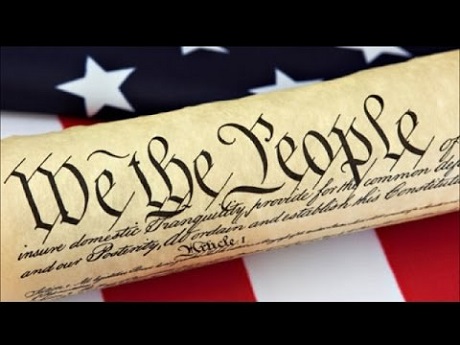 We the People of
insure domestic Tranquility, provide for the common defe
and our Posterity, do ordain and establish this Constitutio
Article 1